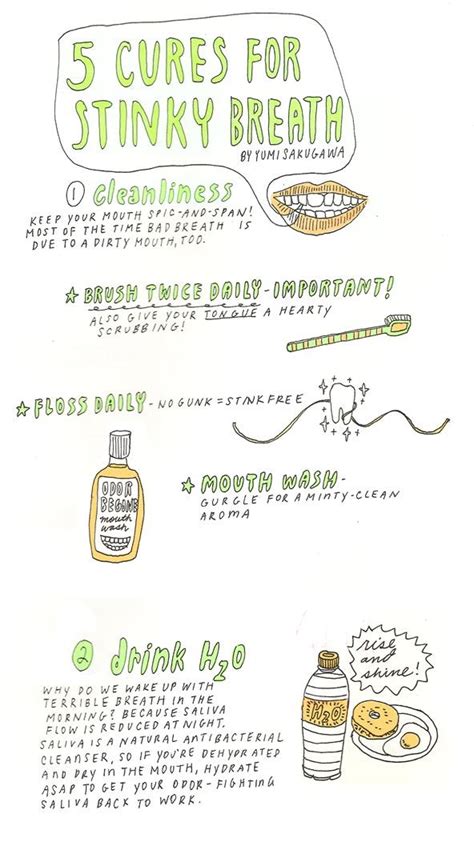 5 CURES FOR
STINKY BREATH
BY YUMI SAKUGAWA
① cleanliness
KEEP YOUR MOUTH SPIC-AND-SPAN!
MOST OF THE TIME BAD BREATH IS
DUE TO A DIRTY MOUTH, TOO.
★ BRUSH TWICE DAILY - IMPORTANT!
ALSO GIVE YOUR TONGUE A HEARTY
SCRUBBING!
★ FLOSS DAILY - NO GUNK = STINK FREE
ODOR
BEGONE
mouth
wash
★ MOUTH WASH -
GURGLE FOR A MINTY-CLEAN
AROMA
② drink H₂O
WHY DO WE WAKE UP WITH
TERRIBLE BREATH IN THE
MORNING? BECAUSE SALIVA
FLOW IS REDUCED AT NIGHT.
SALIVA IS A NATURAL ANTIBACTERIAL
CLEANSER, SO IF YOU'RE DEHYDRATED
AND DRY IN THE MOUTH, HYDRATE
ASAP TO GET YOUR ODOR-FIGHTING
SALIVA BACK TO WORK.
H₂O
rise
and
shine!